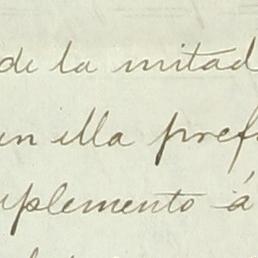 de la mitad
en ella pref
uplemento á